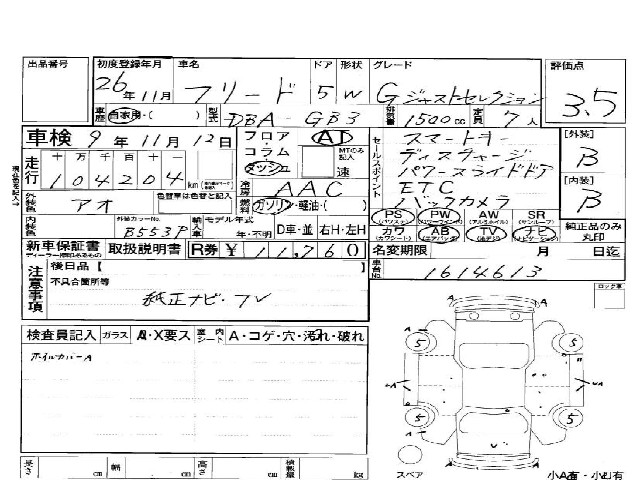 出品番号 初度登録年月 車名 ドア 形状 グレード 評価点
26年11月 フリード 5 W Gジャストセレクション 3.5
車歴 自家用・( ) 型式 DBA-GB3 排気量 1500cc 定員 7人
車検 9年11月12日 フロア・コラム・ダッシュ AT MTのみ記入 速
走行 十万千百十一
104204 km
冷房 AAC
外装色 アオ 色替車は色替と記入 燃料 ガソリン・軽油・( )
内装色 外装カラーNo. B553P 輸入車 モデル年式 年・不明 D車・並 右H・左H
セールスポイント
スマートキー
ディスチャージ
パワースライドドア
ETC
バックカメラ
[外装] B
[内装] B
PS (パワステ) PW (パワーウインド) AW (アルミホイール) SR (サンルーフ)
カワ (カワシート) AB (エアバッグ) TV ナビ (ナビゲーション)
純正品のみ丸印
新車保証書 取扱説明書 R券 ¥11,760 名変期限 月 日迄
注意事項 後日品【 】 車台No. 1614613
不具合箇所等
純正ナビ・TV
ロック車
検査員記入 ガラス A・X要ス 室内シート A・コゲ・穴・汚れ・破れ
ホイルカバーA
5 5
A A
5 5
スペア
長さ cm 幅 cm 高さ cm 積載量 kg
小A有・小U有